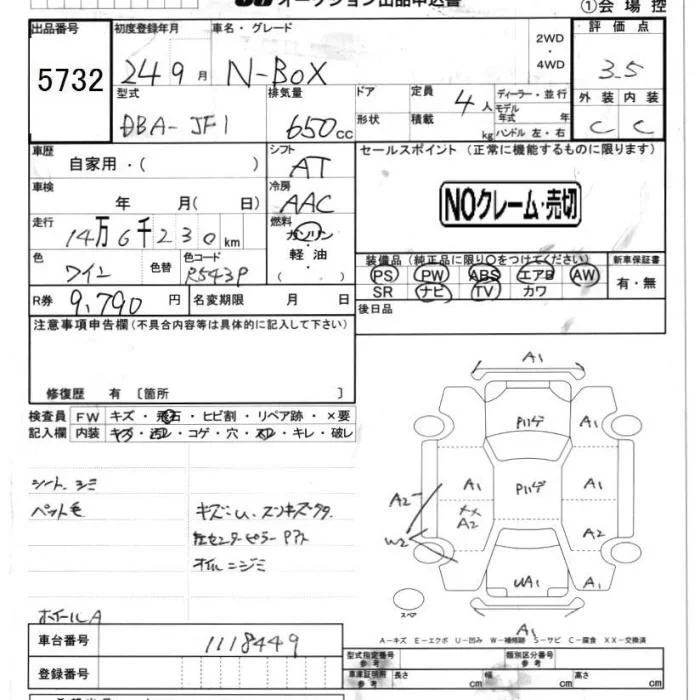 オークション出品申込書
①会場控
出品番号
5732
初度登録年月
車名・グレード
24 9月 N-BOX
2WD
・
4WD
評価点
3.5
型式
DBA-JF1
排気量
650cc
ドア
形状
定員
4人
積載
kg
ディーラー・並行
モデル年式 年
ハンドル 左・右
外装 内装
C C
車歴
自家用・( )
シフト
AT
セールスポイント(正常に機能するものに限ります)
車検
年 月( 日)
冷房
AAC
NOクレーム・売切
走行
14万6千230km
燃料
ガソリン
・
軽油
色
ワイン
色替
色コード
R543P
装備品(純正品に限り○をつけてください)
新車保証書
PS PW ABS エアB AW
SR ナビ TV カワ
有・無
R券 9,790円
名変期限 月 日
後日品
注意事項申告欄(不具合内容等は具体的に記入して下さい)
修復歴 有 [箇所 ]
検査員
記入欄
FW キズ・飛石・ヒビ割・リペア跡・×要
内装 キズ・汚れ・コゲ・穴・スレ・キレ・破レ
シート シミ
ペット毛
キズ・U、スンキズ多々
左センターピラー Pアト
オイルニジミ
ホイールA
A1
Pハゲ
A1
A1
Pハゲ
A1
A2
××
A2
A2
W2
A1
UA1
スペア
A1
A-キズ E-エクボ U-凹み W-補修跡 S-サビ C-腐食 XX-交換済
車台番号 1118449
登録番号
型式指定番号
参考
類別区分番号
参考
車庫証明用
参考
長さ cm
幅 cm
高さ cm